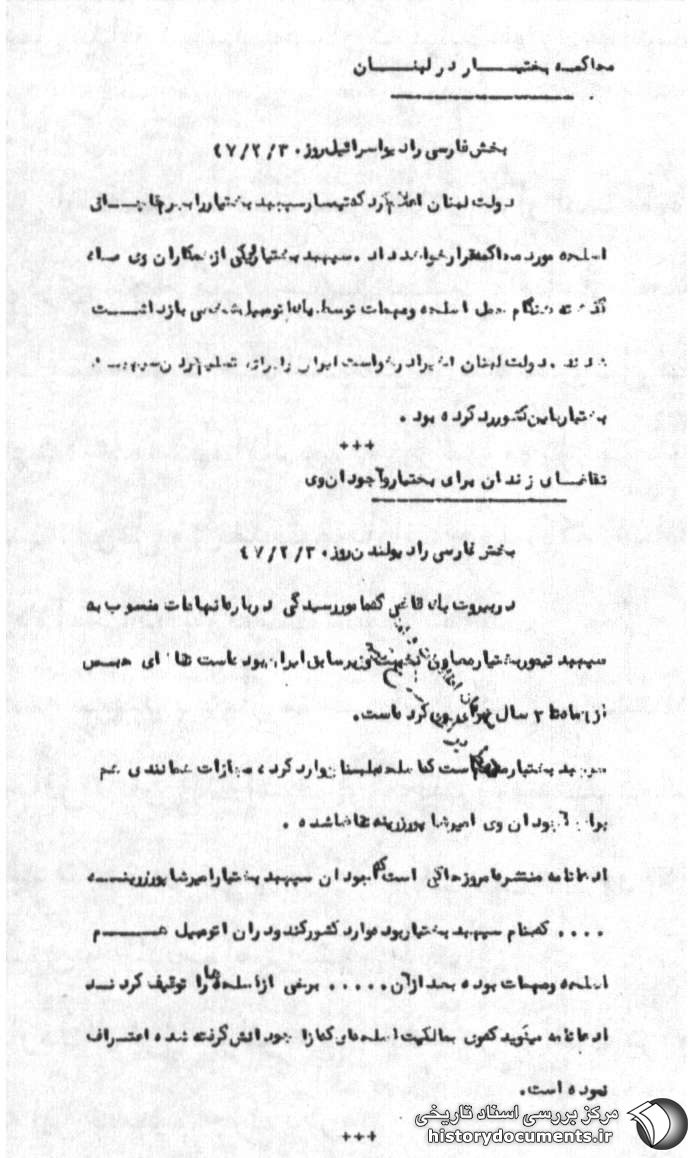 محاکمه بختیار در لبنان
بخش فارسی رادیو اسرائیل روز ۴۷/۲/۳۰
دولت لبنان اعلام کرد که تیمسار سپهبد بختیار را بجرم قاچاق
اسلحه مورد محاکمه قرار خواهد داد . سپهبد بختیار و یکی از همکاران وی ماه
گذشته هنگام حمل اسلحه ومهمات توسط یک اتومبیل شخصی بازداشت
شدند . دولت لبنان اخیرا درخواست ایران را برای تسلیم کردن سپهبد
بختیار باین کشور رد کرده بود .
+++
تقاضای زندان برای بختیار و آجودان وی
بخش فارسی رادیو لندن روز ۴۷/۲/۳۰
در بیروت یک قاضی که مامور رسیدگی درباره اتهامات منسوب به
سپهبد تیمور بختیار معاون نخست وزیر سابق ایران بوده است تقاضای حبس
از ۶ ماه تا ۳ سال برای وی کرده است.
سپهبد بختیار متهم است که اسلحه بلبنان وارد کرده ، مجازات همانندی هم
برای آجودان وی امیر شاپور زرینه تقاضا شده .
ادعانامه منتشره امروز حاکی است که آجودان سپهبد بختیار امیر شاپور زرینه
.... که بنام سپهبد بختیار بود وارد کشور کند و در آن اتومبیل هم
اسلحه ومهمات بوده بعد از آن ..... برخی از اسلحه ها را توقیف کردند
ادعانامه میگوید که وی بمالکیت اسلحه های که از آجودانش گرفته شده اعتراف
نموده است.
+++
مرکز بررسی اسناد تاریخی
historydocuments.ir